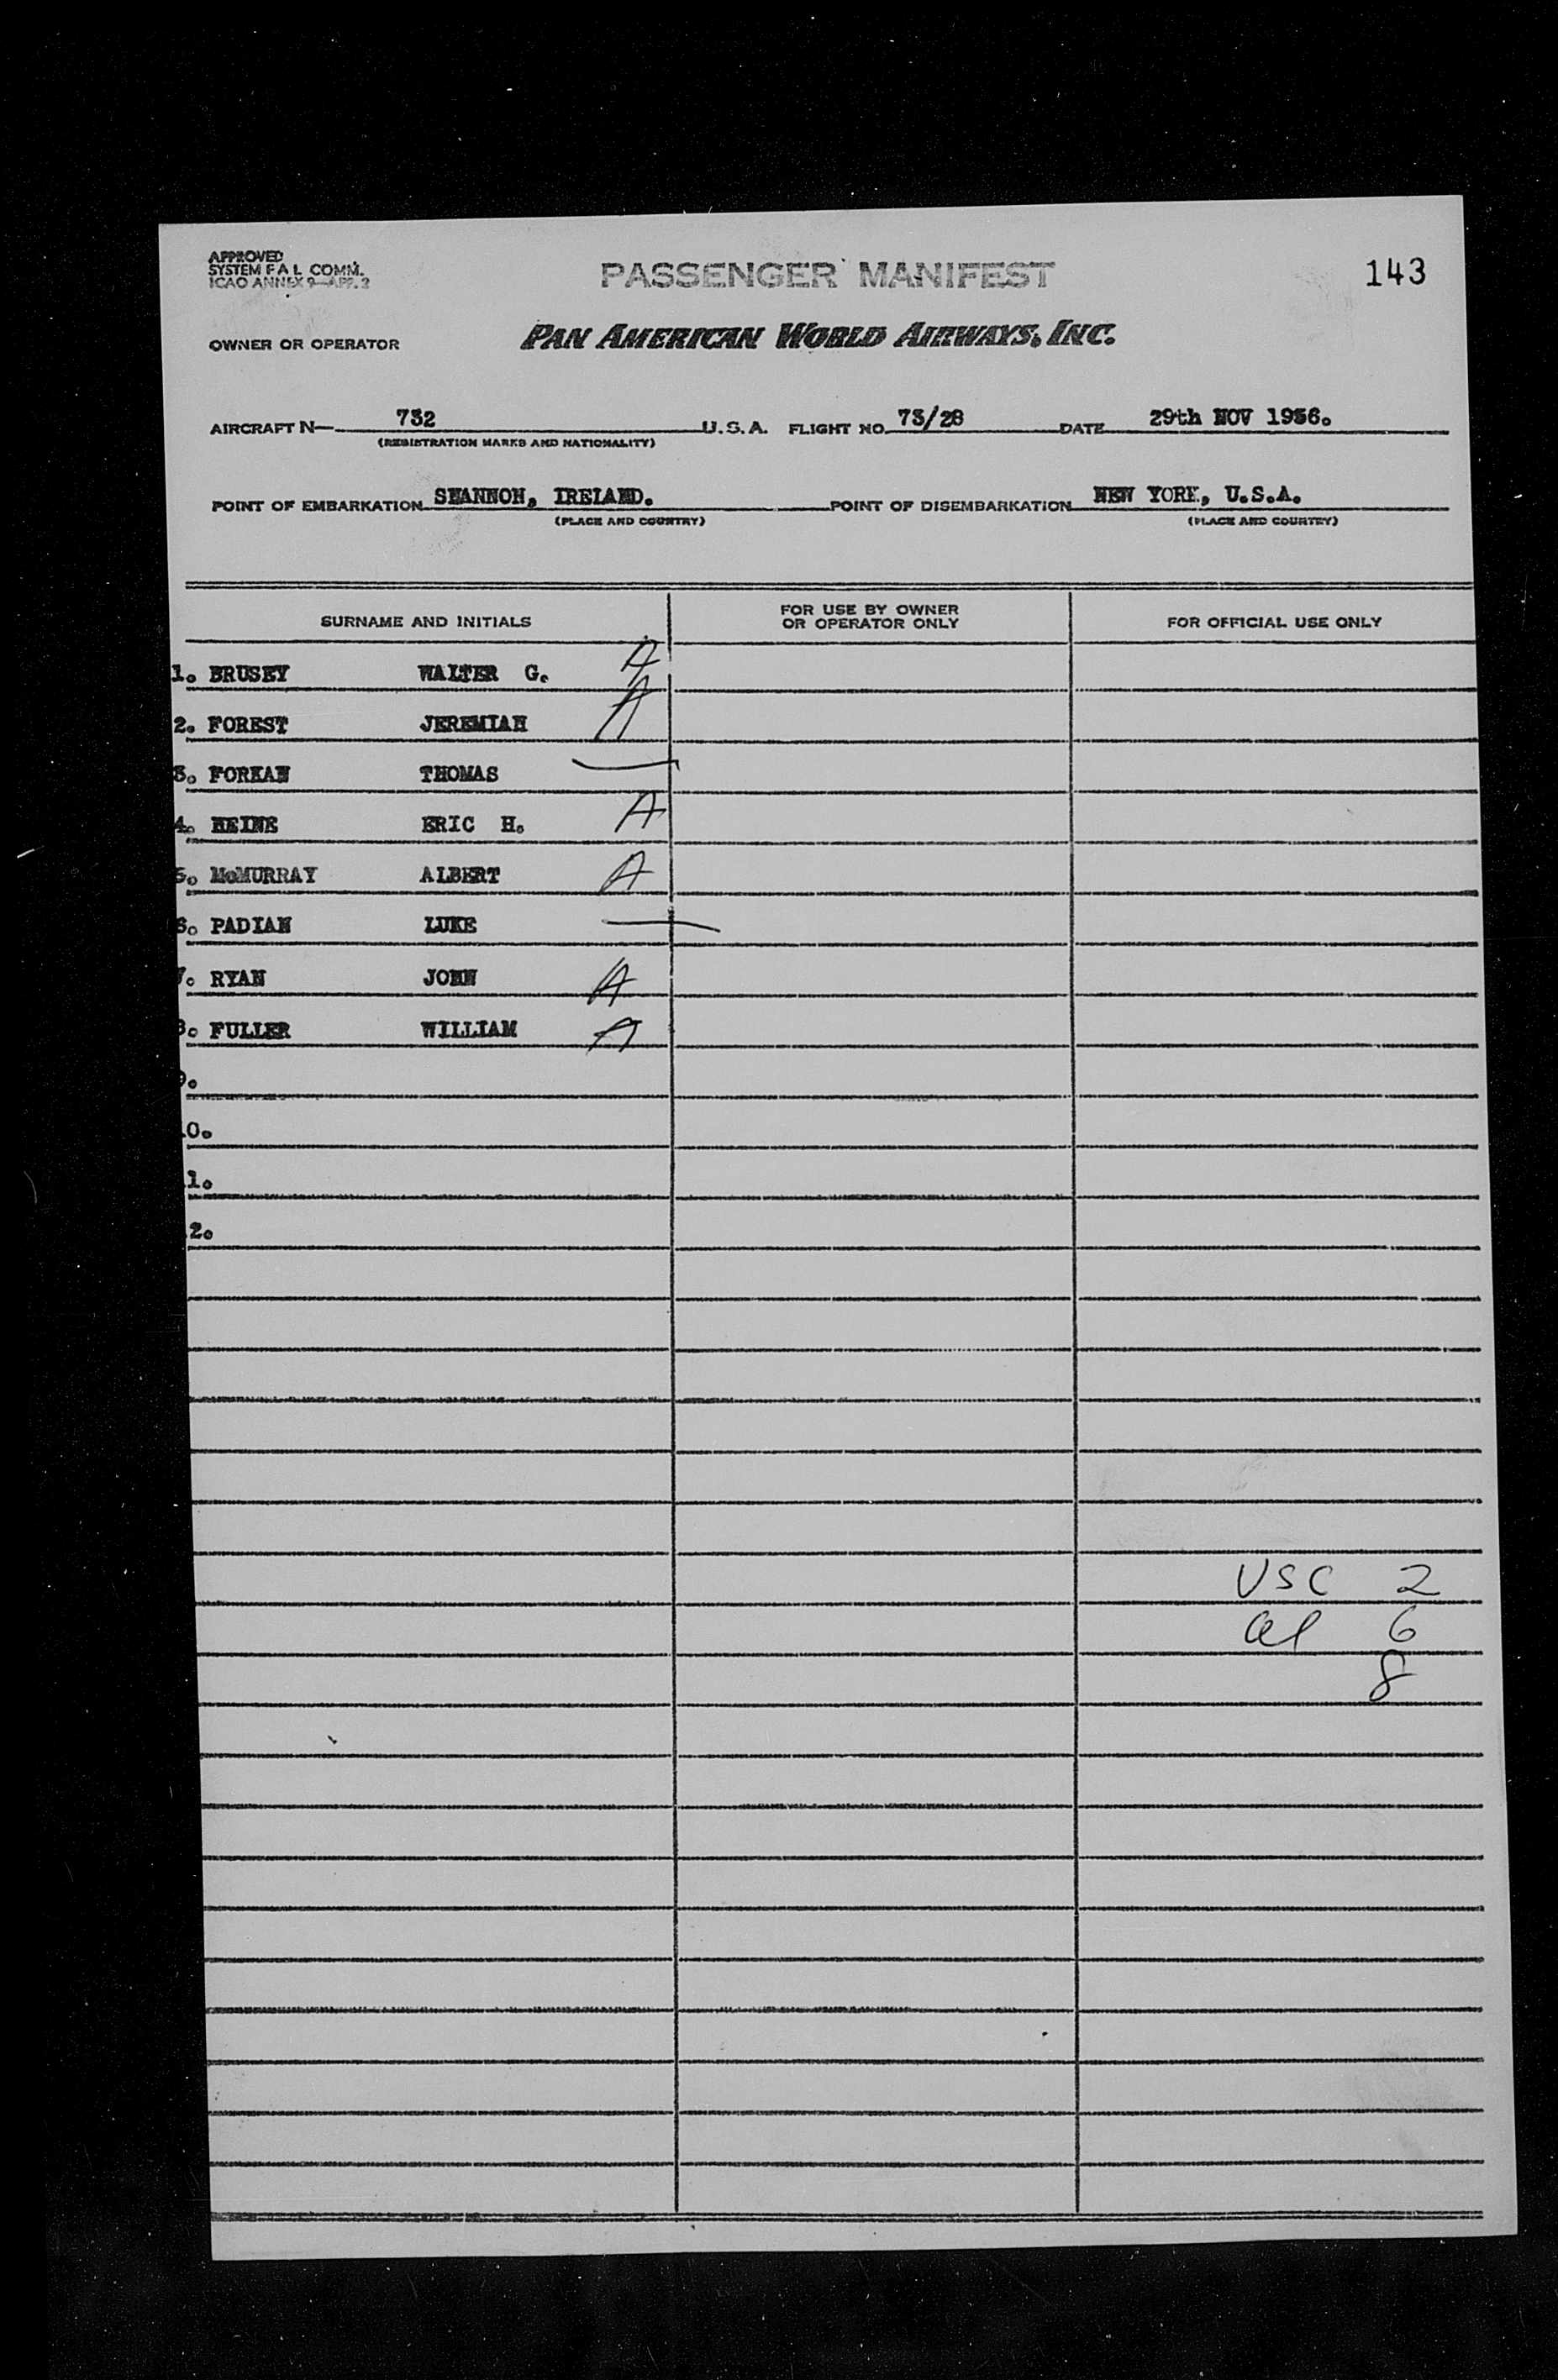 APPROVED
SYSTEM F A L COMM.
ICAO ANNEX 9—APP. 2
PASSENGER MANIFEST
143
OWNER OR OPERATOR
PAN AMERICAN WORLD AIRWAYS, INC.
AIRCRAFT N— 732 U.S.A. FLIGHT NO. 73/28 DATE 29th NOV 1956.
(REGISTRATION MARKS AND NATIONALITY)
POINT OF EMBARKATION SHANNON, IRELAND. POINT OF DISEMBARKATION NEW YORK, U.S.A.
(PLACE AND COUNTRY) (PLACE AND COUNTRY)
SURNAME AND INITIALS FOR USE BY OWNER OR OPERATOR ONLY FOR OFFICIAL USE ONLY
1. BRUSEY WALTER G. A
2. FOREST JEREMIAH A
3. FORKAN THOMAS —
4. HEINE ERIC H. A
5. McMURRAY ALBERT A
6. PADIAN LUKE —
7. RYAN JOHN A
8. FULLER WILLIAM A
9.
10.
11.
12.
USC 2
al 6
8